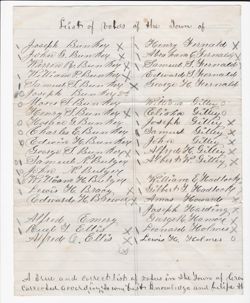 List of voters of the Town of
Joseph Bunker
John E. Bunker
Warren A. Bunker
William P. Bunker
Samuel S. Bunker
Joseph Bunker
Hans S. Bunker
Henry S. Bunker
Charles E. Bunker
Edwin H. Bunker
George S. Bunker
Samuel N. Bulger
John A. Bulger
William H. Bulger
Lewis H. Bracy
Edwards H. Brewer
Alfred Emery
Earl S. Ellis
Alfred C. Ellis
Henry Fernald
Abraham C. Fernald
Samuel S. Fernald
Edward S. Fernald
George H. Fernald
William Gilley
Elisha Gilley
Joseph Gilley
Samuel Gilley
John Gilley
Alfred M Gilley
Albert W Gilley
William E Hadlock
Gilbert T Hadlock
Amas Howard
Joseph Harding
George R. Hamor
Leonard Holmes
Lewis H. Holmes
A true and correct list of voters in the Town of
corrected according to our best knowledge and belief